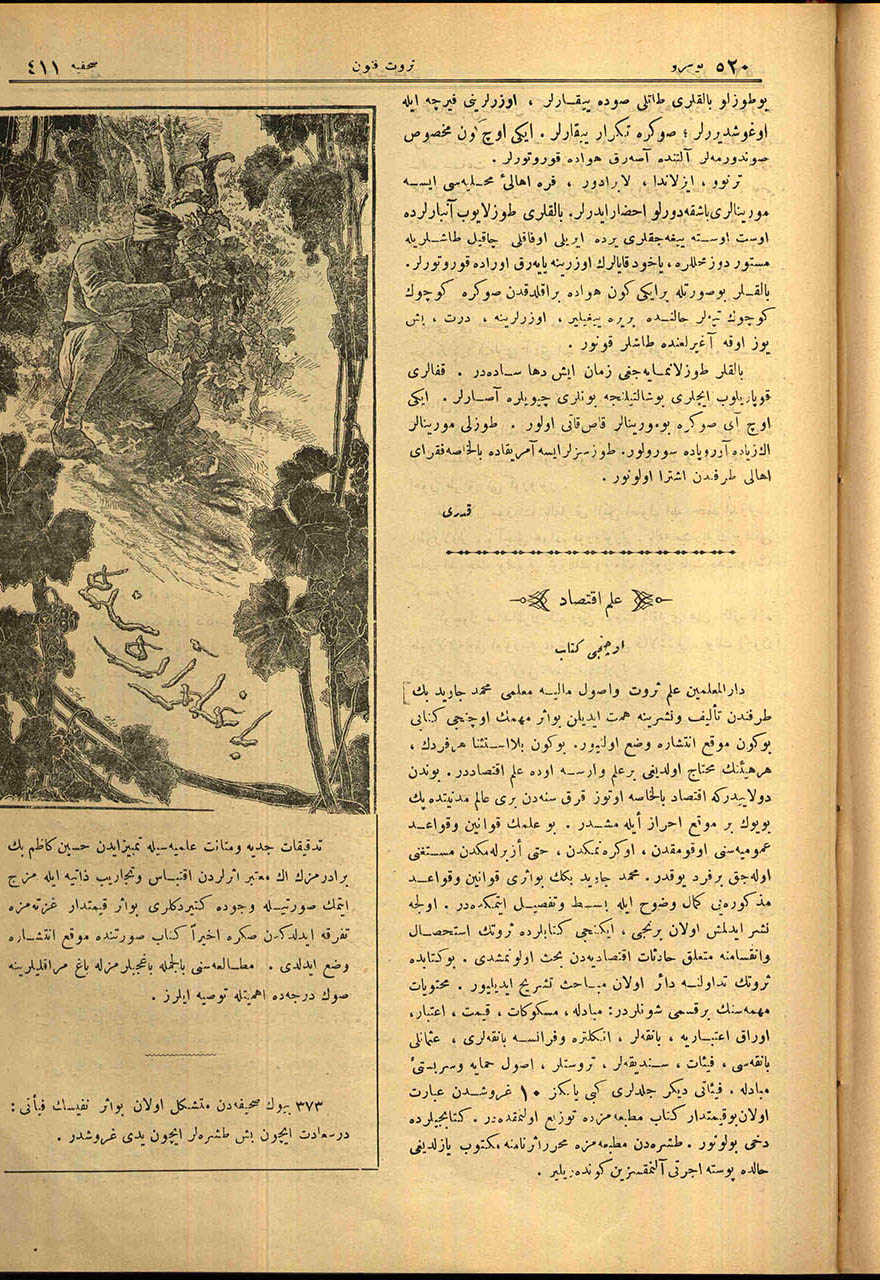 نومرو ٥٢٠
ثروت فنون
صحیفه ٤١١
بوطوزلو بالقلری طاتلی صوده ییقارلر ، اوزرلرینی فیرچه ایله
اوغوشدیررلر ؛ صوکره تکرار ییقارلر . ایکی اوچ کون مخصوص
صوندورمه‌لر آلتنده آسه‌رق هواده قوروتورلر .
ترنوو ، ایزلاندا ، لابرادور ، فره اهالئ محلیه‌سی ایسه
مورینالری باشقه‌دورلو احضار ایدرلر. بالقلری طوزلایوب آنبارلرده
اوست اوسته ییغه‌جقلری یرده ایریلی اوفاقلی چاقیل طاشلریله
مستور دوز محللره ، یاخود قایالرك اوزرینه یایه‌رق اوراده قوروتورلر.
بالقلر بوصورتله برایکی کون هواده براقلدقدن صوکره کوچوك
کوچوك تپه‌لر حالنده بریره ییغیلیر ، اوزرلرینه ، درت ، بش
یوز اوقه آغیرلغنده طاشلر قونور .
بالقلر طوزلانمایه‌جغی زمان ایش دها ساده‌در . قفالری
قوپاریلوب ایچلری بوشالتیلنجه بونلری چیویلره آصارلر . ایکی
اوچ آی صوکره بو مورینالر قاص‌قاتی اولور . طوزلی مورینالر
اك زیاده آوروپاده سورولور. طوزسزلر ایسه آمریقاده بالخاصه فقرای
اهالی طرفندن اشترا اولونور .
قدری
علم اقتصاد
اوچنجی کتاب
دارالمعلمین علم ثروت واصول مالیه معلمی محمد جاوید بك
طرفندن تألیف ونشرینه همت ایدیلن بواثر مهمك اوچنجی کتابی
بوکون موقع انتشاره وضع اولنیور. بوکون بلااستثنا هرفردك ،
هرهیئتك محتاج اولدیغی برعلم وارسه اوده علم اقتصاددر. بوندن
دولاییدرکه اقتصاد بالخاصه اوتوز قرق سنه‌دن بری عالم مدنیتده پك
بویوك بر موقع احراز ایله‌مشدر . بو علمك قوانین وقواعد
عمومیه‌سنی اوقومقدن ، اوکره‌نمکدن ، حتی ازبرله‌مکدن مستغنی
اوله‌جق برفرد یوقدر. محمد جاوید بكك بواثری قوانین وقواعد
مذکوره‌یی کمال وضوح ایله بسط وتفصیل ایتمکده‌در . اولجه
نشر ایدلمش اولان برنجی ، ایکنجی کتابلرده ثروتك استحصال
وانقسامنه متعلق حادثات اقتصادیه‌دن بحث اولونمشدی . بوکتابده
ثروتك تداولنه دائر اولان مباحث تشریح ایدیلیور . محتویات
مهمه‌سنك برقسمی شونلردر: مبادله ، مسکوکات ، قیمت ، اعتبار،
اوراق اعتباریه ، بانقه‌لر ، انکلتره وفرانسه بانقه‌لری ، عثمانلی
بانقه‌سی ، فیئات ، سندیقه‌لر ، تروستلر ، اصول حمایه وسربستئ
مبادله . فیئاتی دیکر جلدلری کبی یالکز ١٠ غروشدن عبارت
اولان بو قیمتدار کتاب مطبعه‌مزده توزیع اولنمقده‌در . کتابجیلرده
دخی بولونور . طشره‌دن مطبعه‌مزه محرر اثر نامنه مکتوب یازلدیغی
حالده پوسته اجرتی آلنمقسزین کونده‌ریلیر .
تدقیقات جدیه ومتانت علمیه‌سیله تمیز ایدن حسین کاظم بك
برادرمزك اك معتبر اثرلردن اقتباس وتجاریب ذاتیه ایله مزج
ایتمك صورتیله وجوده کتیردکلری بواثر قیمتدار غزته‌مزه
تفرقه ایدلدکدن صکره اخیراً کتاب صورتنده موقع انتشاره
وضع ایدلدی . مطالعه‌سنی بالجمله باغجیلرمزله باغ مراقلیلرینه
صوك درجه‌ده اهمیتله توصیه ایلرز .
٣٧٣ بیوك صحیفه‌دن متشکل اولان بواثر نفیسك فیأتی :
درسعادت ایچون بش طشره‌لر ایچون یدی غروشدر .